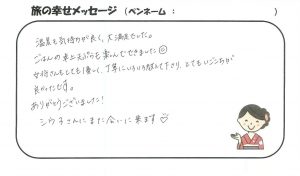 旅の幸せメッセージ (ペンネーム: )
温泉も気持が良く、大満足でした。
ごはんの卓上天ぷらも楽しんできました☺
女将さんもとても優しく、丁寧にいろいろ教えて下さり、とてもいごこちが
良かったです。
ありがとうございました!
シウ子さんにまた会いに来ます